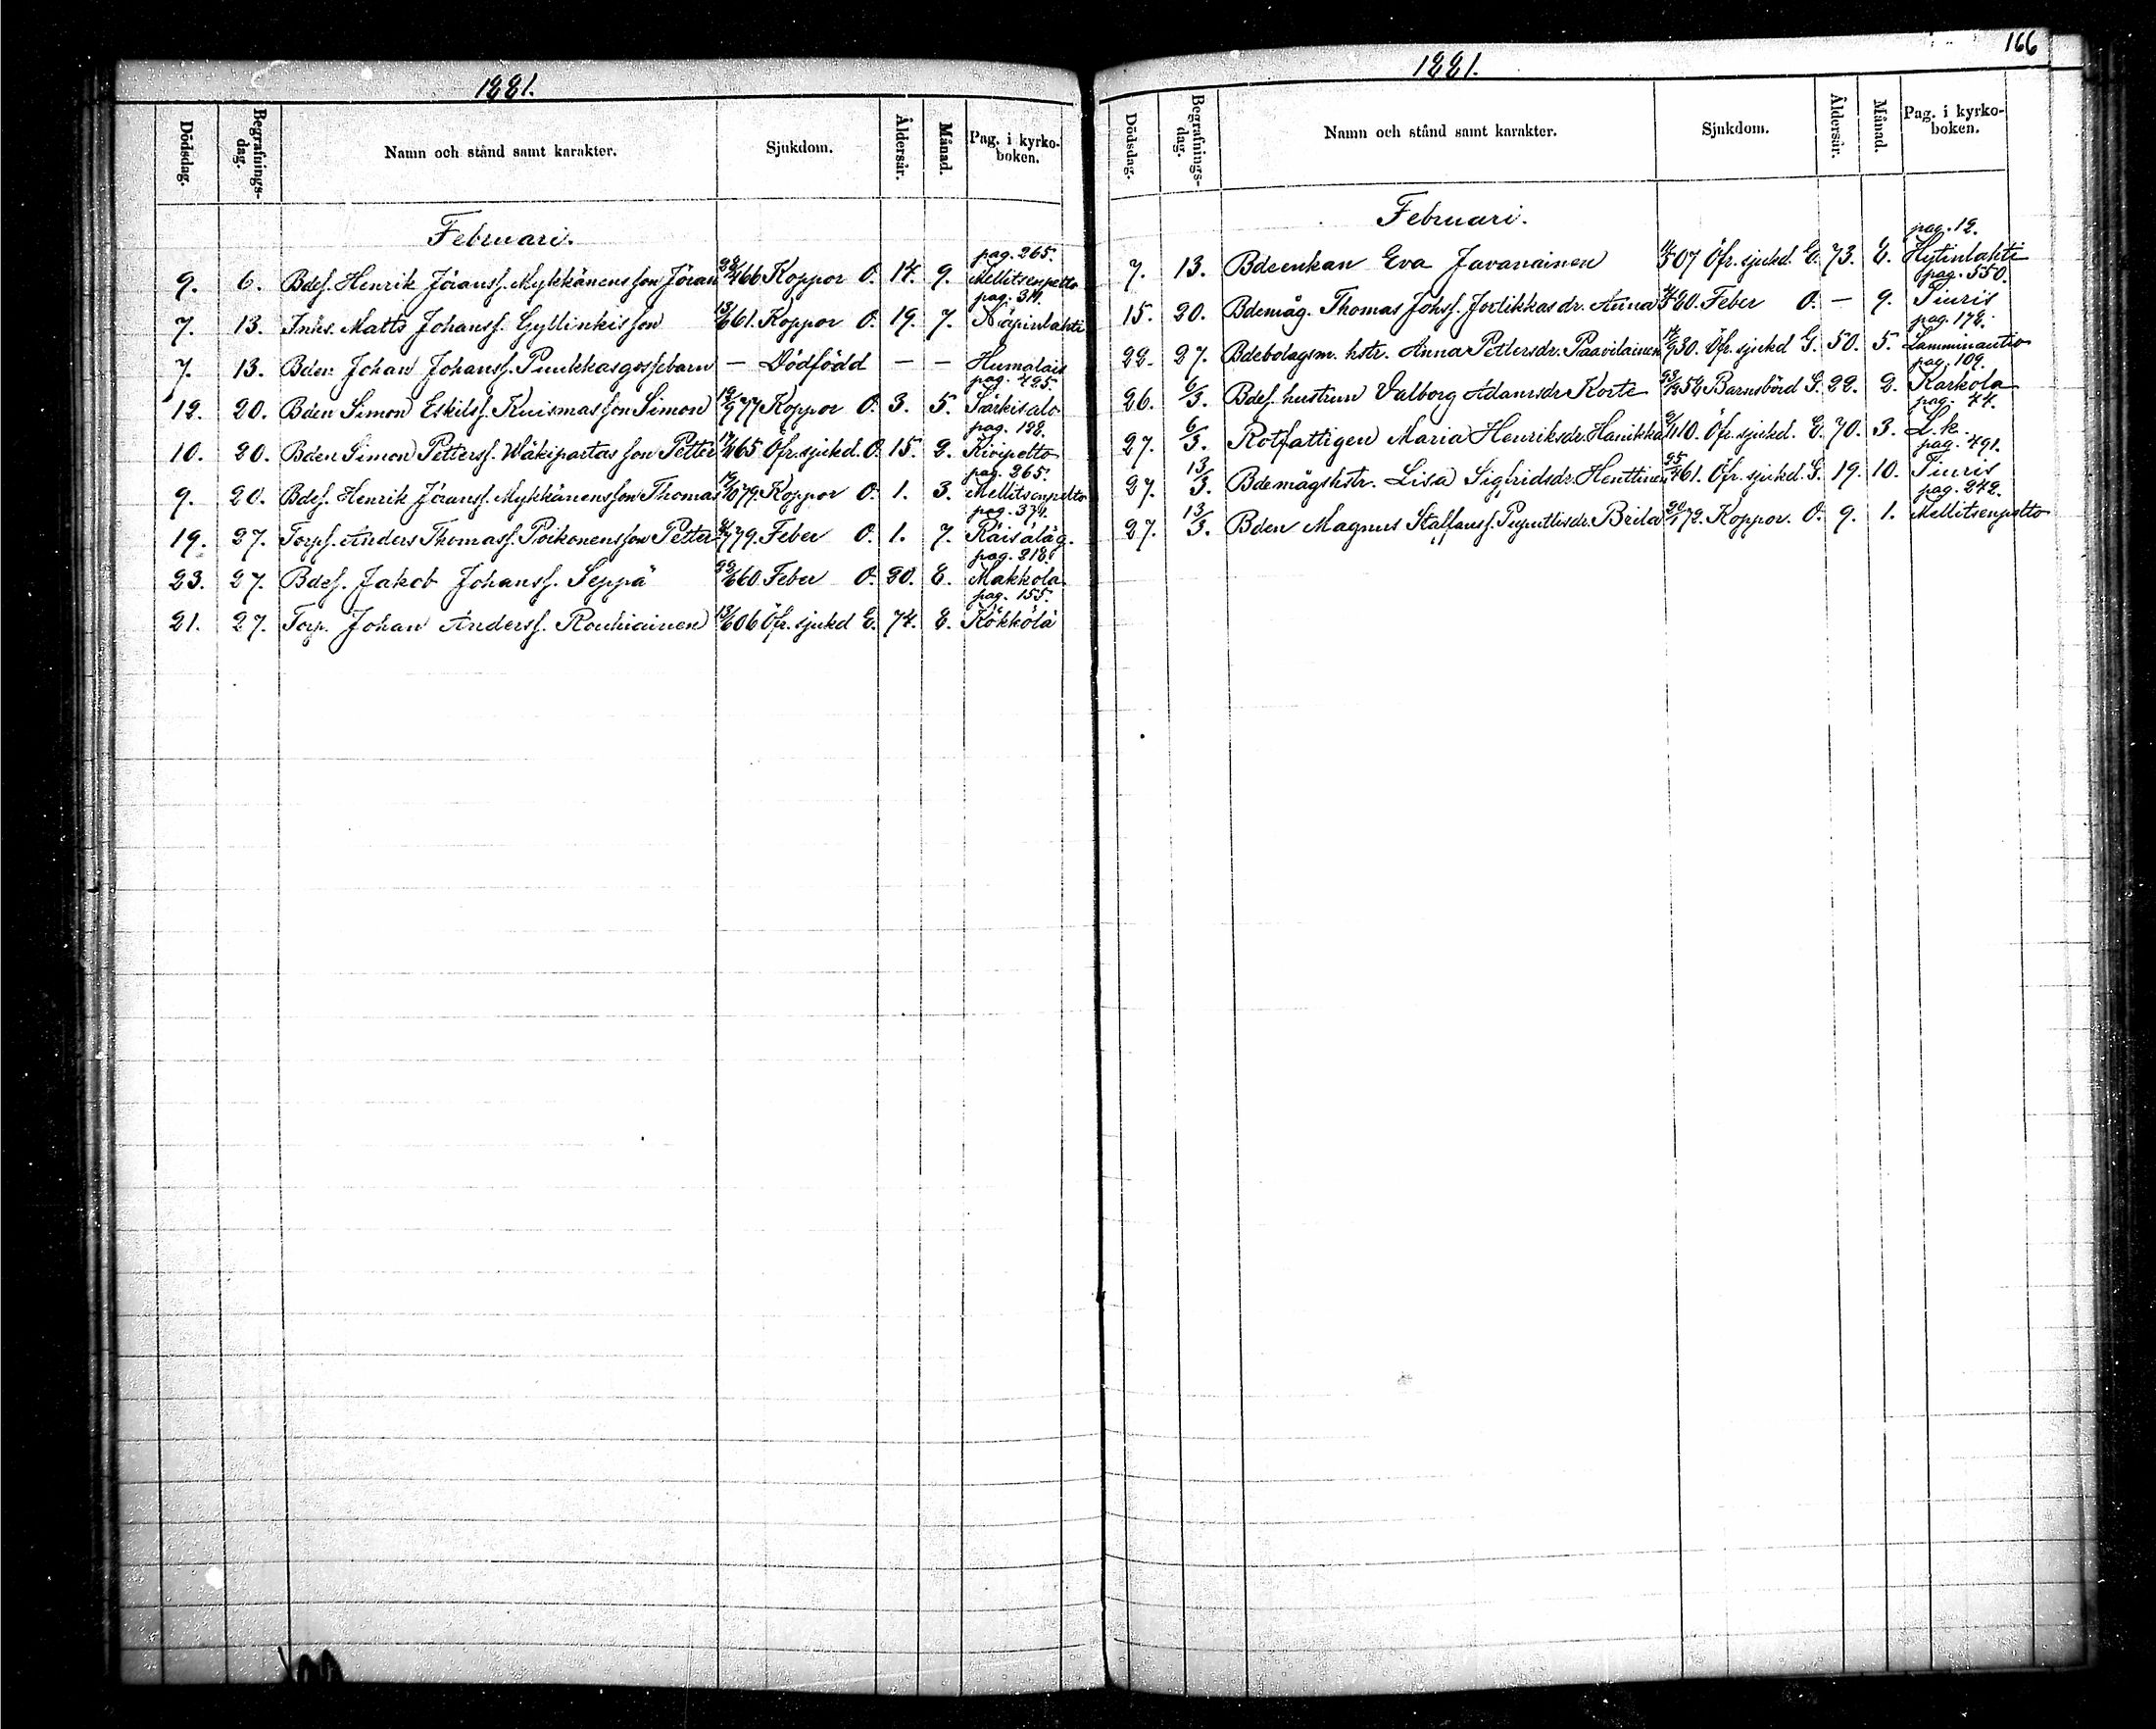 1881.
Dödsdag. Begrafningsdag. Namn och stånd samt karakter. Sjukdom. Åldersår. Månad. Pag. i kyrkoboken.
Februari.
pag. 265.
9. 6. Bdes. Henrik Jöranss. Mykkänens son Jöran 28/4 66 Koppor O. 14. 9. Mellitsenpelto
pag. 311.
7. 13. Inhs. Matts Johanss. Gyllinkis son 13/6 61. Koppor O. 19. 7. Näpinlahti
7. 13. Bden Johan Johanss. Punkkas gossebarn — Dödfödd — — Humalais
pag. 425.
12. 20. Bden Simon Eskilss. Kuismas son Simon 19/9 77 Koppor O. 3. 5. Särkisalo
pag. 198.
10. 20. Bden Simon Petterss. Wäkipartas son Petter 65 Öfr. sjukd. O. 15. 2. Kivipelto
pag. 265.
9. 20. Bdes. Henrik Jöranss. Mykkänens son Thomas 79. Koppor O. 1. 3. Mellitsenpelto
pag. 371.
19. 27. Torps. Anders Thomass. Poikonens son Petter 79. Feber O. 1. 7. Räisäläg.
pag. 218.
23. 27. Bdes. Jakob Johanss. Seppä 22/6 60 Feber O. 20. 8. Makkola
pag. 155.
21. 27. Torp. Johan Anderss. Rouhiainen 13/6 06 Öfr. sjukd E. 74. 8. Kökkölä
166
1881.
Dödsdag. Begrafningsdag. Namn och stånd samt karakter. Sjukdom. Åldersår. Månad. Pag. i kyrkoboken.
Februari.
pag. 12.
7. 13. Bdeenkan Eva Javanainen 07 Öfr. sjukd. E. 73. 8. Hytinlahti
pag. 550.
15. 20. Bdemåg. Thomas Johs. Jortikkas dr. Anna 80. Feber O. — 9. Tiuris
pag. 178.
22. 27. Bdebolagsm. hstr. Anna Pettersdr. Paavilainen 30. Öfr. sjukd G. 50. 5. Lamminautio
pag. 109.
26. 6/3. Bdes. hustrun Valborg Adamsdr Korte 23/12 58 Barnsbörd G. 22. 2. Karkola
pag. 44.
27. 6/3. Rotfattigen Maria Henriksdr. Hanikka 10. Öfr. sjukd. E. 70. 3. L. k.
pag. 491.
27. 13/3. Bdemågshstr. Lisa Sigfridsdr. Henttinen 25/4 61. Öfr. sjukd. G. 19. 10. Tiuris
pag. 242.
27. 13/3. Bden Magnus Staffanss. Puputtis dr. Brita 20/1 72. Koppor. O. 9. 1. Mellitsenpelto